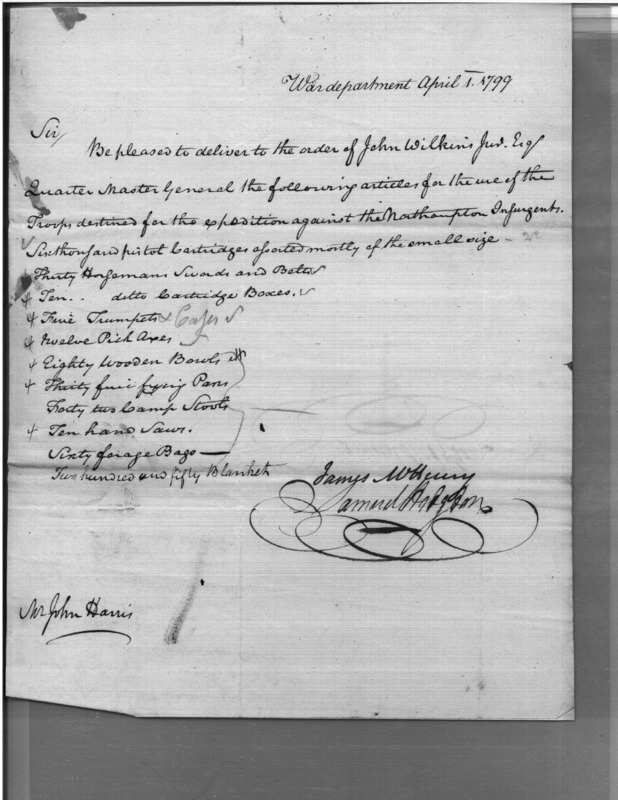 War department April 1. 1799
Sir,
Be pleased to deliver to the order of John Wilkins Junr. Esqr
Quarter Master General the following articles for the use of the
Troops destined for the expedition against the Northampton Insurgents.
Six thousand pistol Cartridges assorted mostly of the small size –
Thirty Horsemans Swords and Belts
Ten .. ditto Cartridge Boxes.
Five Trumpets & Cases
twelve Pick Axes
Eighty Wooden Bowls
Thirty five frying Pans
Forty two Camp Stools
Ten hand Saws.
Sixty forage Bags —
Two hundred and fifty Blankets
James McHenry
Samuel Hodgdon
Mr John Harris